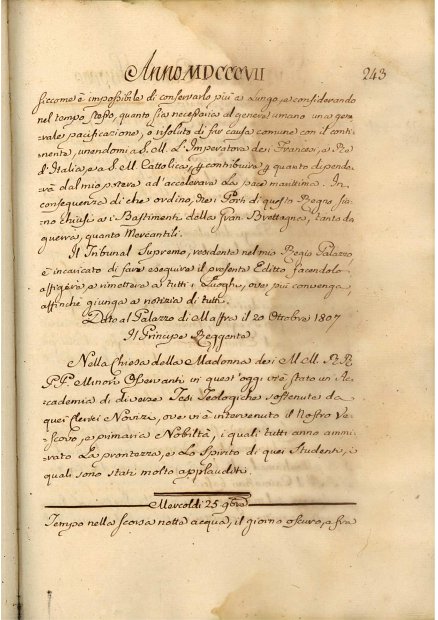 Anno MDCCCVII
243
siccome è impossibile di conservarlo più a lungo, e considerando
nel tempo stesso, quanto sia necessaria al genere umano una gene„
rale pacificazione, o risoluto di far causa comune con il conti„
nente, unendomi a S. M. L'Imperatore dei Francesi, e Re
d'Italia, e a S. M. Cattolica, contribuire quanto dipende„
rà dal mio potere ad accelerare la pace marittima. In
conseguenza di che ordino, che i Porti di questo Regno sia„
no chiusi ai Bastimenti della Gran Brettagna, tanto da
guerra, quanto Mercantili.
Il Tribunal Supremo, residente nel mio Regio Palazzo
è incaricato di fare eseguire il presente Editto, facendolo
affigere, e rimettere a tutti i Luoghi, ove più convenga,
affinchè giunga a notizia di tutti.
Dato al Palazzo di Maffra il 20 Ottobre 1807
Il Principe Reggente
Nella Chiesa della Madonna dei M.M. R.R.
P.P. Minori Osservanti in quest'oggi v'è stato un Ac„
cademia di diverse Tesi Teologiche sostenute da
quei Clerici Novizi, ove vi è intervenuto il Nostro Ve„
scovo, e primaria Nobiltà, i quali tutti anno ammi„
rato la prontezza, e lo spirito di quei Studenti, i
quali sono stati molto applauditi.
Mercoldì 25 9bre
Tempo nella scorsa notte acqua, il giorno oscuro, e fra